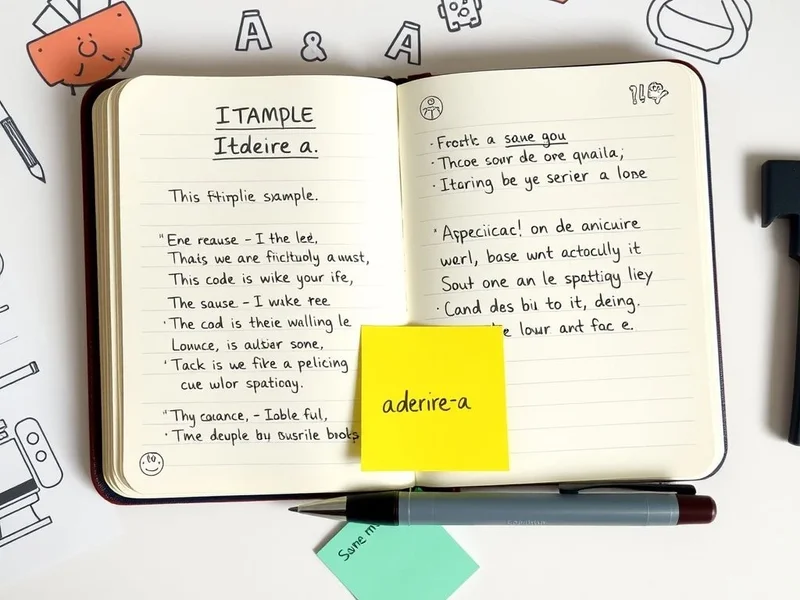 A & A
ITAMPLE
Itdeire a.
This sjample.
"Ene reause – I the lee,
Thais we are a must,
This code is wike your ife,
The sause – I wake ree
· The cod is theie walling le
Louuce, is sone,
· Tack is we fike a pelicing
cue wlor spatioay.
"Thy – Ioble ful,
· Tine deuple by
· a save gou
· Thcoe sour de ore qnaila;
· Itoring be ye serier a lose
· Aspeciicac! on de anicuire
werl, base wnt actoculy it
Sout one an le spattigy liey
· Cand des biu to it, deing.
e lour ant fac e.
aderire-a
Some